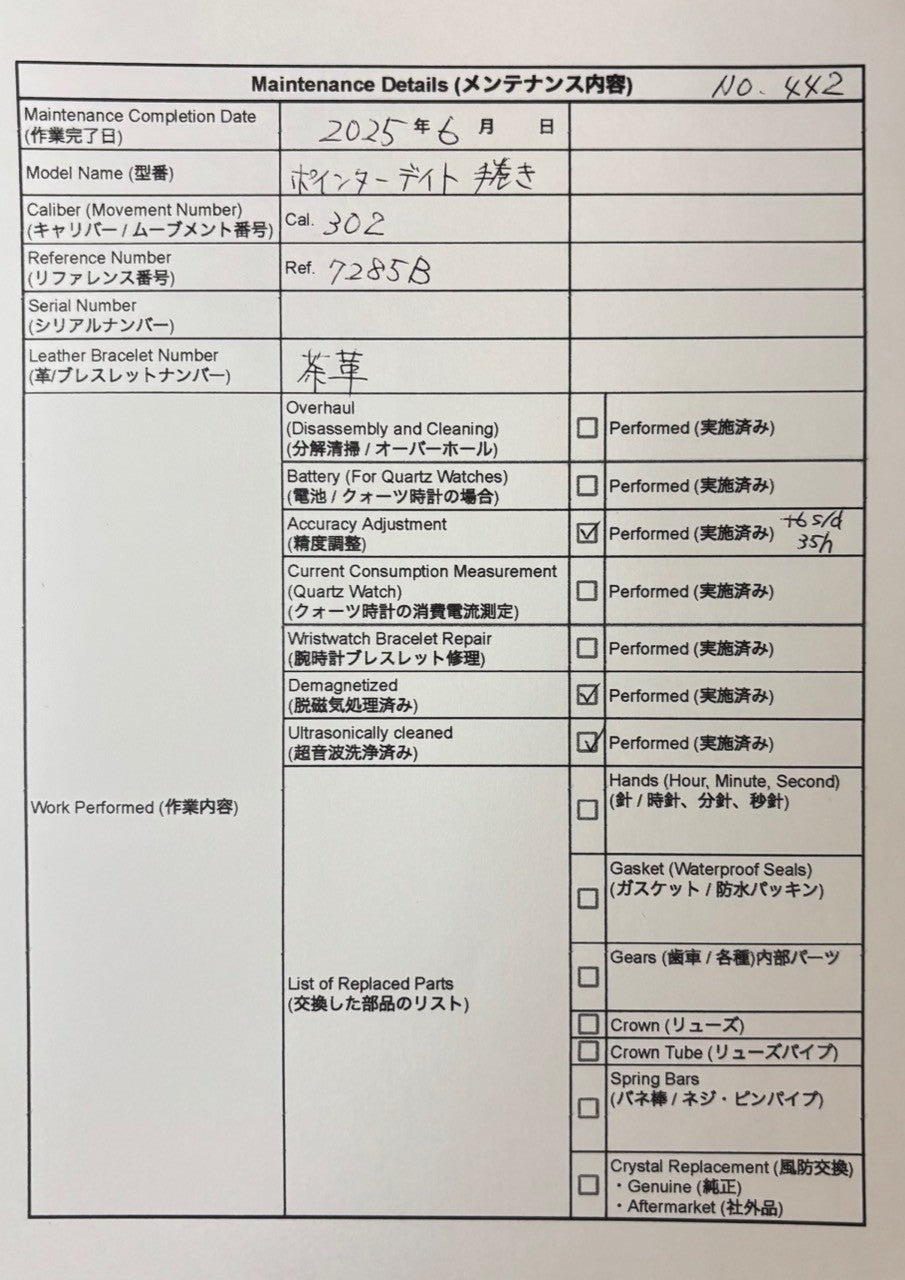 Maintenance Details (メンテナンス内容) NO. 442
Maintenance Completion Date
(作業完了日)
2025年6月 日
Model Name (型番)
ポインターデイト 手巻き
Caliber (Movement Number)
(キャリバー / ムーブメント番号)
Cal. 302
Reference Number
(リファレンス番号)
Ref. 7285B
Serial Number
(シリアルナンバー)
Leather Bracelet Number
(革/ブレスレットナンバー)
茶革
Work Performed (作業内容)
Overhaul
(Disassembly and Cleaning)
(分解清掃 / オーバーホール)
☐ Performed (実施済み)
Battery (For Quartz Watches)
(電池 / クォーツ時計の場合)
☐ Performed (実施済み)
Accuracy Adjustment
(精度調整)
☑ Performed (実施済み) +6 s/d
35h
Current Consumption Measurement
(Quartz Watch)
(クォーツ時計の消費電流測定)
☐ Performed (実施済み)
Wristwatch Bracelet Repair
(腕時計ブレスレット修理)
☐ Performed (実施済み)
Demagnetized
(脱磁気処理済み)
☑ Performed (実施済み)
Ultrasonically cleaned
(超音波洗浄済み)
☑ Performed (実施済み)
List of Replaced Parts
(交換した部品のリスト)
☐ Hands (Hour, Minute, Second)
(針 / 時針、分針、秒針)
☐ Gasket (Waterproof Seals)
(ガスケット / 防水パッキン)
☐ Gears (歯車 / 各種)内部パーツ
☐ Crown (リューズ)
☐ Crown Tube (リューズパイプ)
☐ Spring Bars
(バネ棒 / ネジ・ピンパイプ)
☐ Crystal Replacement (風防交換)
・Genuine (純正)
・Aftermarket (社外品)